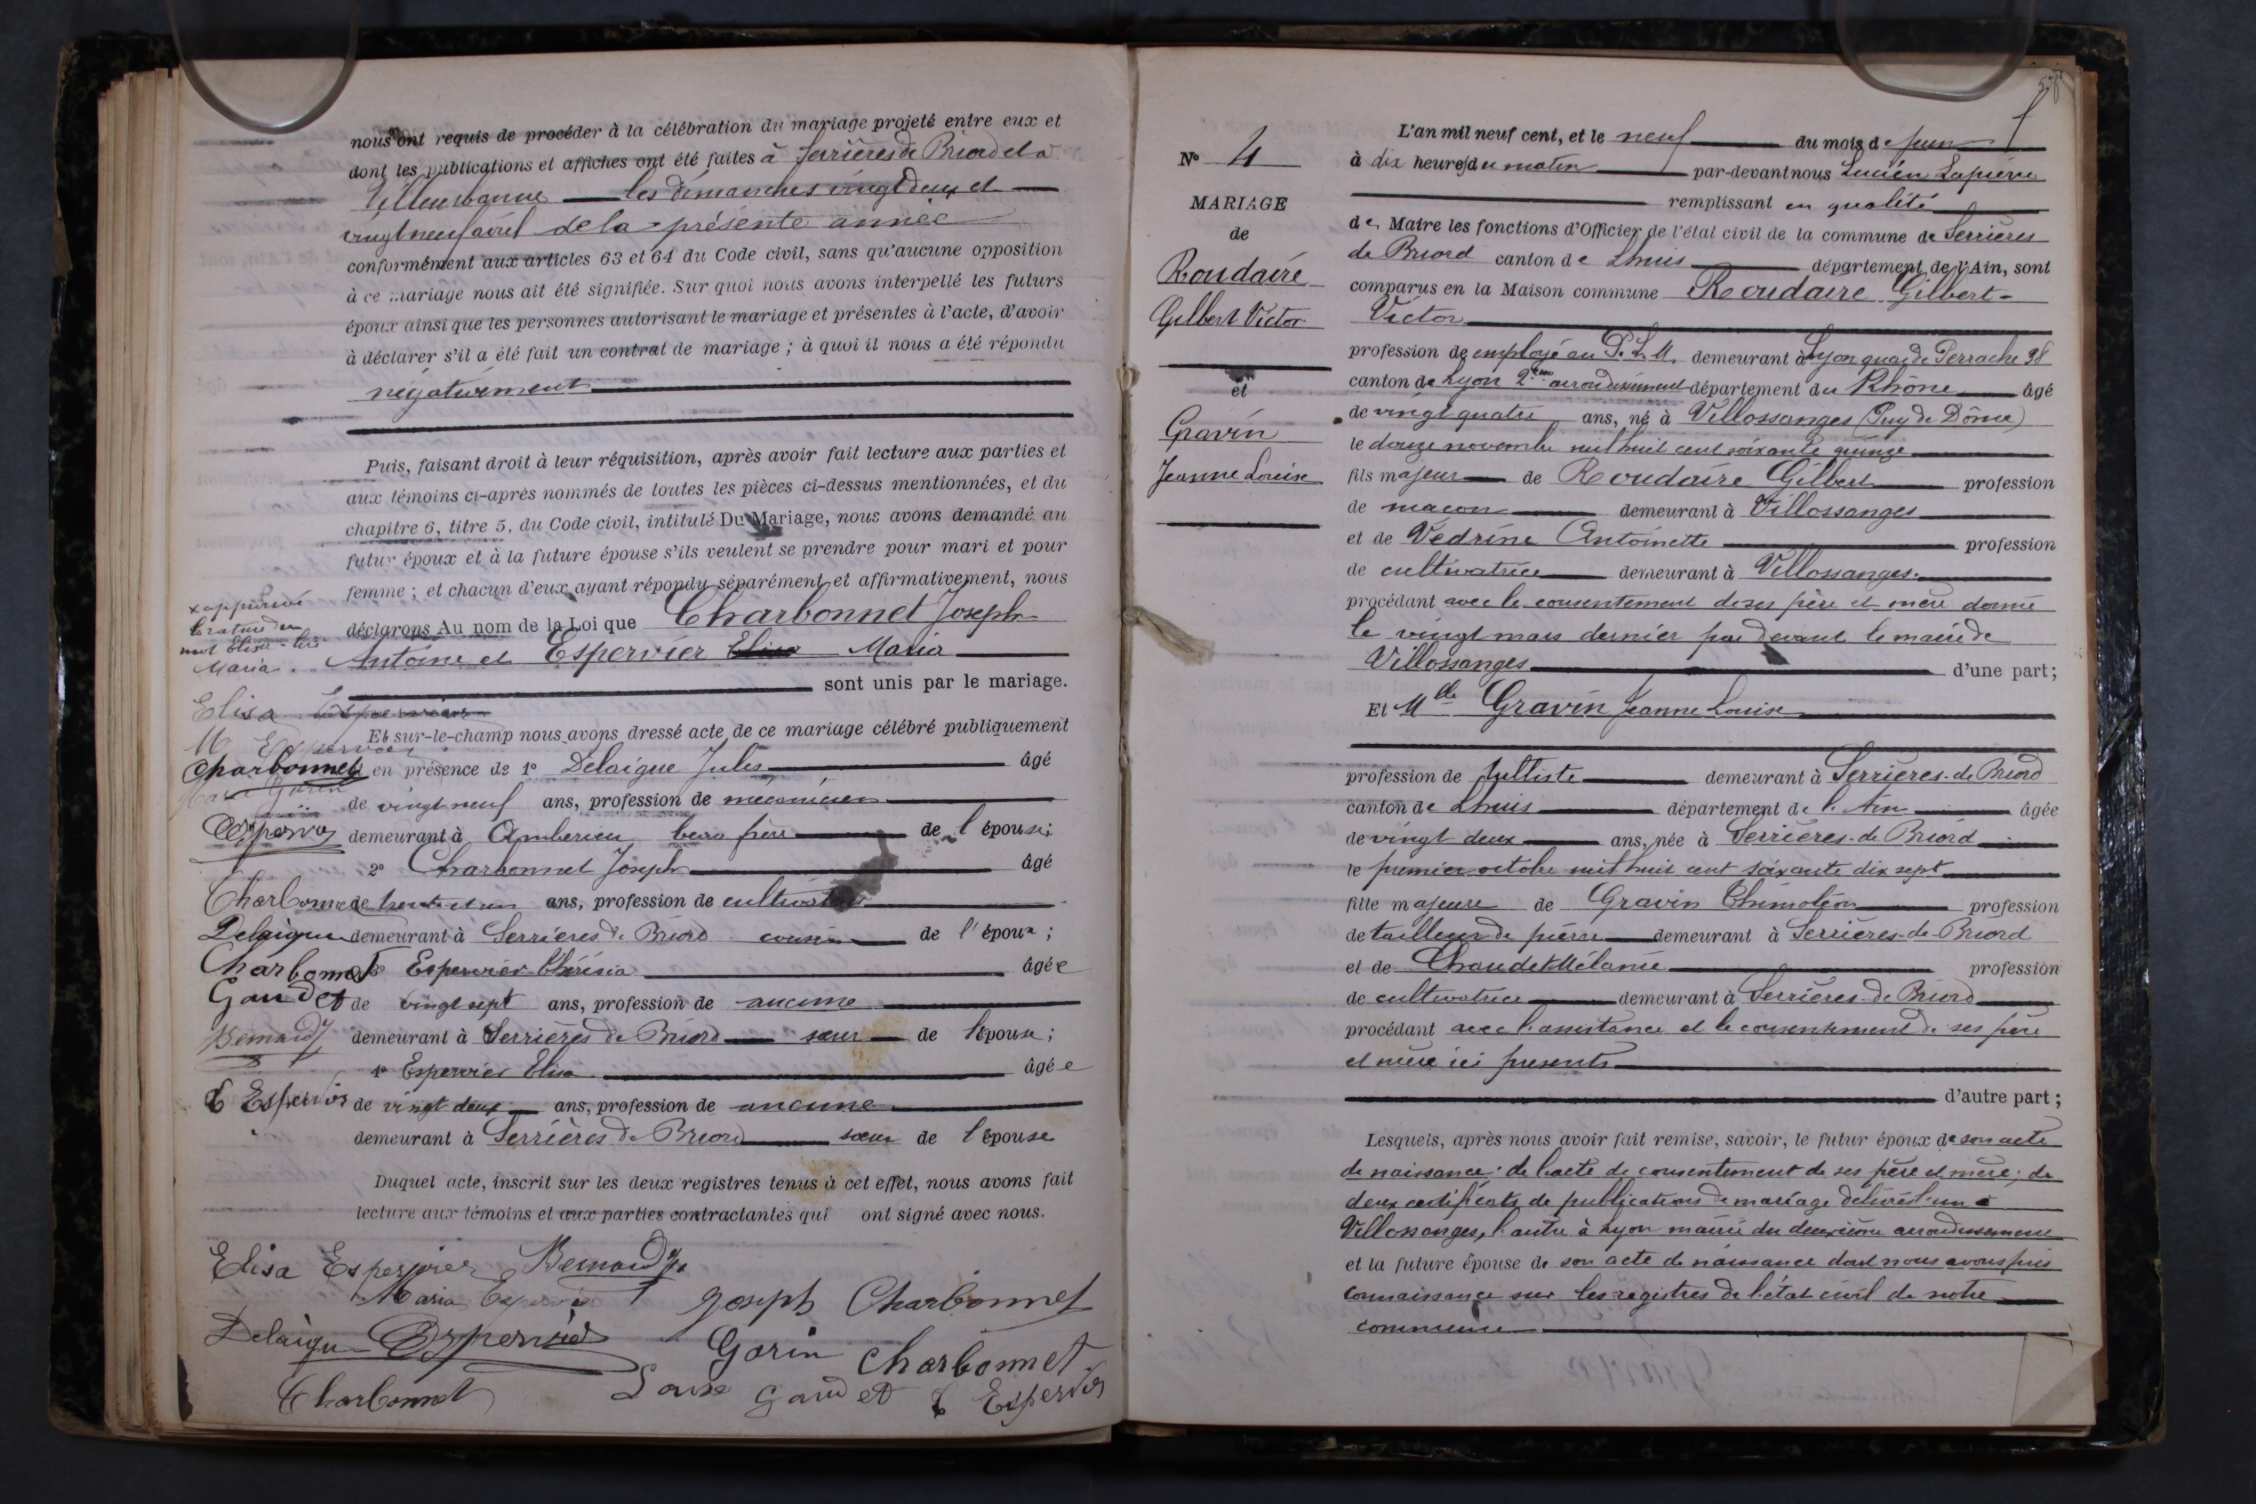 nous ont requis de procéder à la célébration du mariage projeté entre eux et
dont les publications et affiches ont été faites à Serrières de Briord et à
Villeurbanne les dimanches vingt deux et
vingt neuf avril de la présente année
conformément aux articles 63 et 64 du Code civil, sans qu'aucune opposition
à ce mariage nous ait été signifiée. Sur quoi nous avons interpellé les futurs
époux ainsi que les personnes autorisant le mariage et présentes à l'acte, d'avoir
à déclarer s'il a été fait un contrat de mariage ; à quoi il nous a été répondu
négativement
Puis, faisant droit à leur réquisition, après avoir fait lecture aux parties et
aux témoins ci-après nommés de toutes les pièces ci-dessus mentionnées, et du
chapitre 6, titre 5, du Code civil, intitulé Du Mariage, nous avons demandé au
futur époux et à la future épouse s'ils veulent se prendre pour mari et pour
femme ; et chacun d'eux ayant répondu séparément et affirmativement, nous
déclarons Au nom de la Loi que Charbonnet Joseph
Antoine et Espervier Elisa Maria
sont unis par le mariage.
x approuvé
la rature du
mot Elisa
Maria.
Elisa Espervier
M Espervier
Charbonnet
Et sur-le-champ nous avons dressé acte de ce mariage célébré publiquement
en présence de 1° Delaigue Jules âgé
de vingt neuf ans, profession de mécanicien
demeurant à Ambérieu beau frère de l'épouse;
2° Charbonnet Joseph âgé
de trente et un ans, profession de cultivateur
demeurant à Serrières de Briord cousin de l'époux ;
3° Espervier Thérésia âgée
de vingt sept ans, profession de aucune
demeurant à Serrières de Briord sœur de l'épouse ;
4° Espervier Elisa âgée
de vingt deux ans, profession de aucune
demeurant à Serrières de Briord sœur de l'épouse
Charbonnet
Delaigue
Charbonnet
Gaudet
E Espervier
Duquel acte, inscrit sur les deux registres tenus à cet effet, nous avons fait
lecture aux témoins et aux parties contractantes qui ont signé avec nous.
Elisa Espervier
Maria Espervier
Joseph Charbonnet
Delaigue Espervier
Gorin Charbonnet
Charbonnet
Gaudet Espervier
N° 4
MARIAGE
de
Roudaire
Gilbert Victor
et
Gravin
Jeanne Louise
L'an mil neuf cent, et le neuf du mois de juin
à dix heures du matin par-devant nous Lucien Lapierre
remplissant en qualité
de Maire les fonctions d'Officier de l'état civil de la commune de Serrières
de Briord canton de Lhuis département de l'Ain, sont
comparus en la Maison commune Roudaire Gilbert-
Victor
profession de employé au P.L.M. demeurant à Lyon quai de Perrache 38
canton de Lyon 2ème arrondissement département du Rhône âgé
de vingt quatre ans, né à Villossanges (Puy de Dôme)
le douze novembre mil huit cent soixante quinze
fils majeur de Roudaire Gilbert profession
de maçon demeurant à Villossanges
et de Védrine Antoinette profession
de cultivatrice demeurant à Villossanges.
procédant avec le consentement de ses père et mère donné
le vingt mars dernier par devant le maire de
Villossanges d'une part;
Et Mlle Gravin Jeanne Louise
profession de tulliste demeurant à Serrières-de-Briord
canton de Lhuis département de l'Ain âgée
de vingt deux ans, née à Serrières-de-Briord
le premier octobre mil huit cent soixante dix sept
fille majeure de Gravin Thimoléon profession
de tailleur de pierre demeurant à Serrières-de-Briord
et de Chaudet Mélanie profession
de cultivatrice demeurant à Serrières-de-Briord
procédant avec l'assistance et le consentement de ses père
et mère ici présents
d'autre part ;
Lesquels, après nous avoir fait remise, savoir, le futur époux de son acte
de naissance; de l'acte de consentement de ses père et mère; de
deux certificats de publications de mariage délivrés l'un à
Villossanges, l'autre à Lyon mairie du deuxième arrondissement
et la future épouse de son acte de naissance dont nous avons pris
connaissance sur les registres de l'état civil de notre
commune